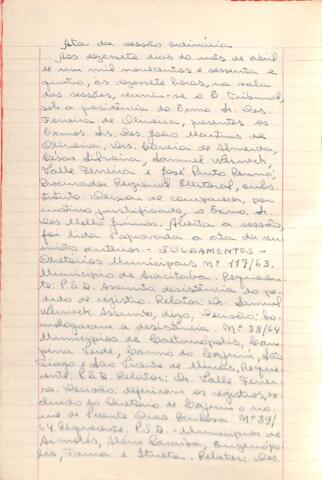 Ata da sessão ordinária
Aos dezessete dias do mês de abril
de um mil novecentos e sessenta e
quatro, às dezessete horas, na sala
das sessões, reuniu-se o E. Tribunal,
sob a presidência do Exmo. Sr. Des.
Ferreira de Oliveira, presentes os
Exmos. Srs. Des. João Martins de
Oliveira, Drs. Corrêa de Almeida,
César Silveira, Samuel Werneck,
Valle Ferreira e José Pinto
Procurador Regional Eleitoral, subs-
tituto. Deixou de comparecer, por
motivo justificado, o Exmo. Sr.
Des. Mello Júnior. Aberta a sessão,
foi lida e aprovada a ata da reu-
nião anterior. - JULGAMENTOS -
Diretórios Municipais nº 117/63.
Município de Aracitaba. Requeren-
te: P.S.D. Assunto desistência do pe-
dido de registro. Relator: Dr. Samuel
Werneck. Assunto, digo, Decisão: ho-
mologaram a desistência. Nº 38/64
Municípios de Caetanópolis, Cam-
pina Verde, Carmo do Cajuru, São
Tiago e São Vicente de Minas, Reque-
rente: P.S.D. Relator: Dr. Valle Ferrei-
ra. Decisão: deferiram os registros, ex-
cluindo do Diretório de Cajuru o no-
me de Vicente Dias Barbosa. Nº 39/
64. Requerente: P.S.D. - Municípios de
Aimorés, Além Paraíba, Eugenópo-
lis, e Relator: Des.